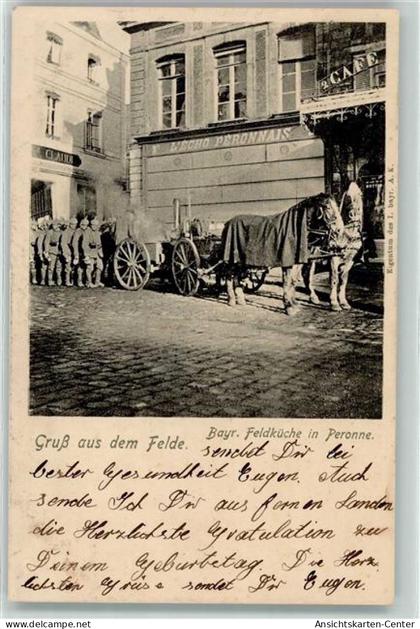 CAFÉ
L'ECHO PERONNAIS
Eigentum des I. bayr. A. K.
Gruß aus dem Felde.
Bayr. Feldküche in Peronne.
sendet Dir bei
bester Gesundheit Eugen. Auch
sende Ich Dir aus fernen Land
die Herzlichste Gratulation zu
Deinem Geburtstag. Die Herz
lichsten Grüse sendet Dir Eugen.
Ansichtskarten-Center